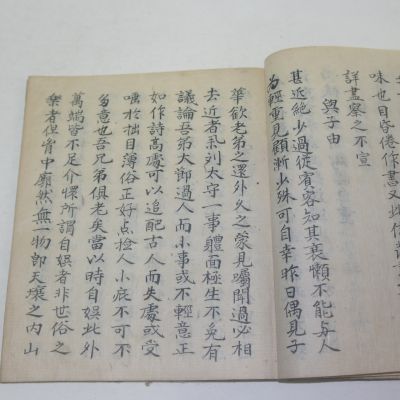 味也目昏倦作書又此
詳盡察之不宣
與子由
甚近絶少過從賓客知其衰懶不能與人
為輕重見顧漸少殊可自幸昨日偶見子
華欲老弟之還外久之蒙見囑聞過必相
去近者系列太守一事體面極生不免有
議論吾弟大御過人而小事或不輕意正
如作詩高處可以追配古人而失處或受
嗤於拙目薄俗正好点撿人小庇不可不
多意也吾兄弟俱老矣當以時自娛此外
萬端皆不足介懷所謂自娛者非世俗之
樂者但胷中廓然無一物即天壤之內山